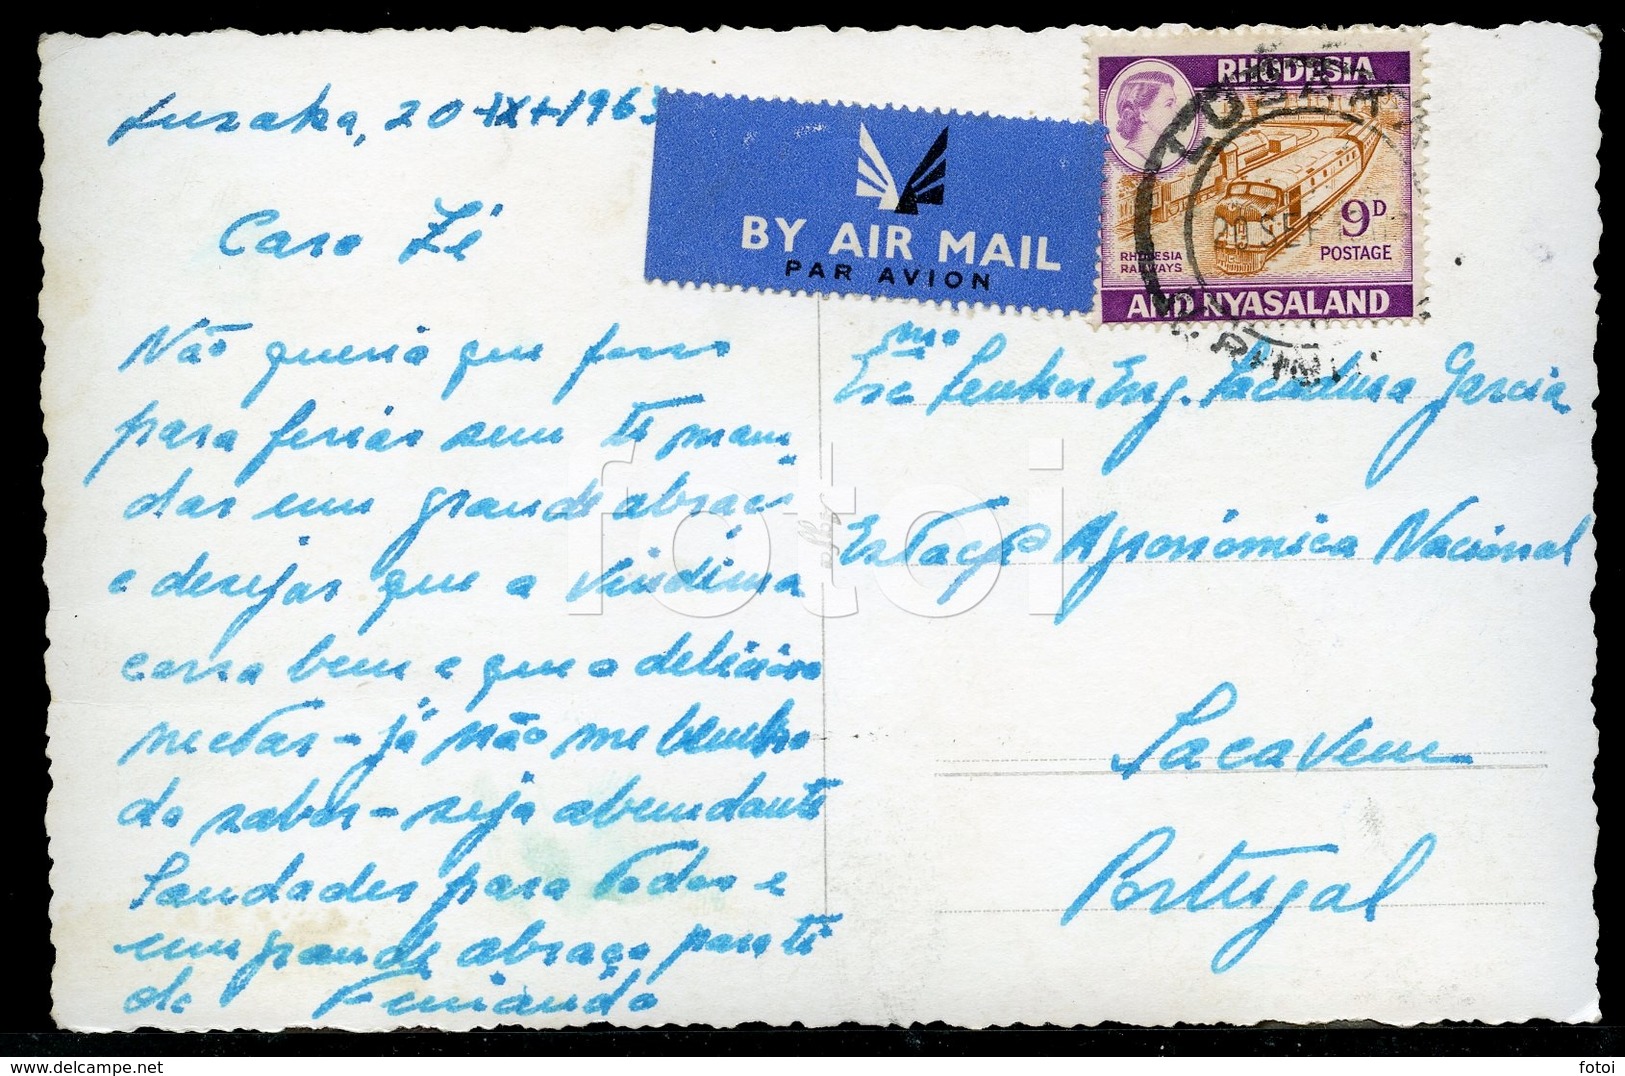 Luzaka, 20-IX-1963
Caro Zé
Não queria que fosses
para ferias sem te man-
dar um grande abraço
e desejar que a vindima
corra bem e que o delicioso
nectar - já não me lembro
do sabor - seja abundante
Saudades para todos e
um grande abraço para ti
do Fernando
BY AIR MAIL
PAR AVION
RHODESIA
9D
POSTAGE
RHODESIA
RAILWAYS
AND NYASALAND
LUSAKA
20 SEP
Exmo Senhor Eng. Sacadura Garcia
Estação Agronómica Nacional
Sacavem
Portugal
fotoi
fotoi
delcampe.net